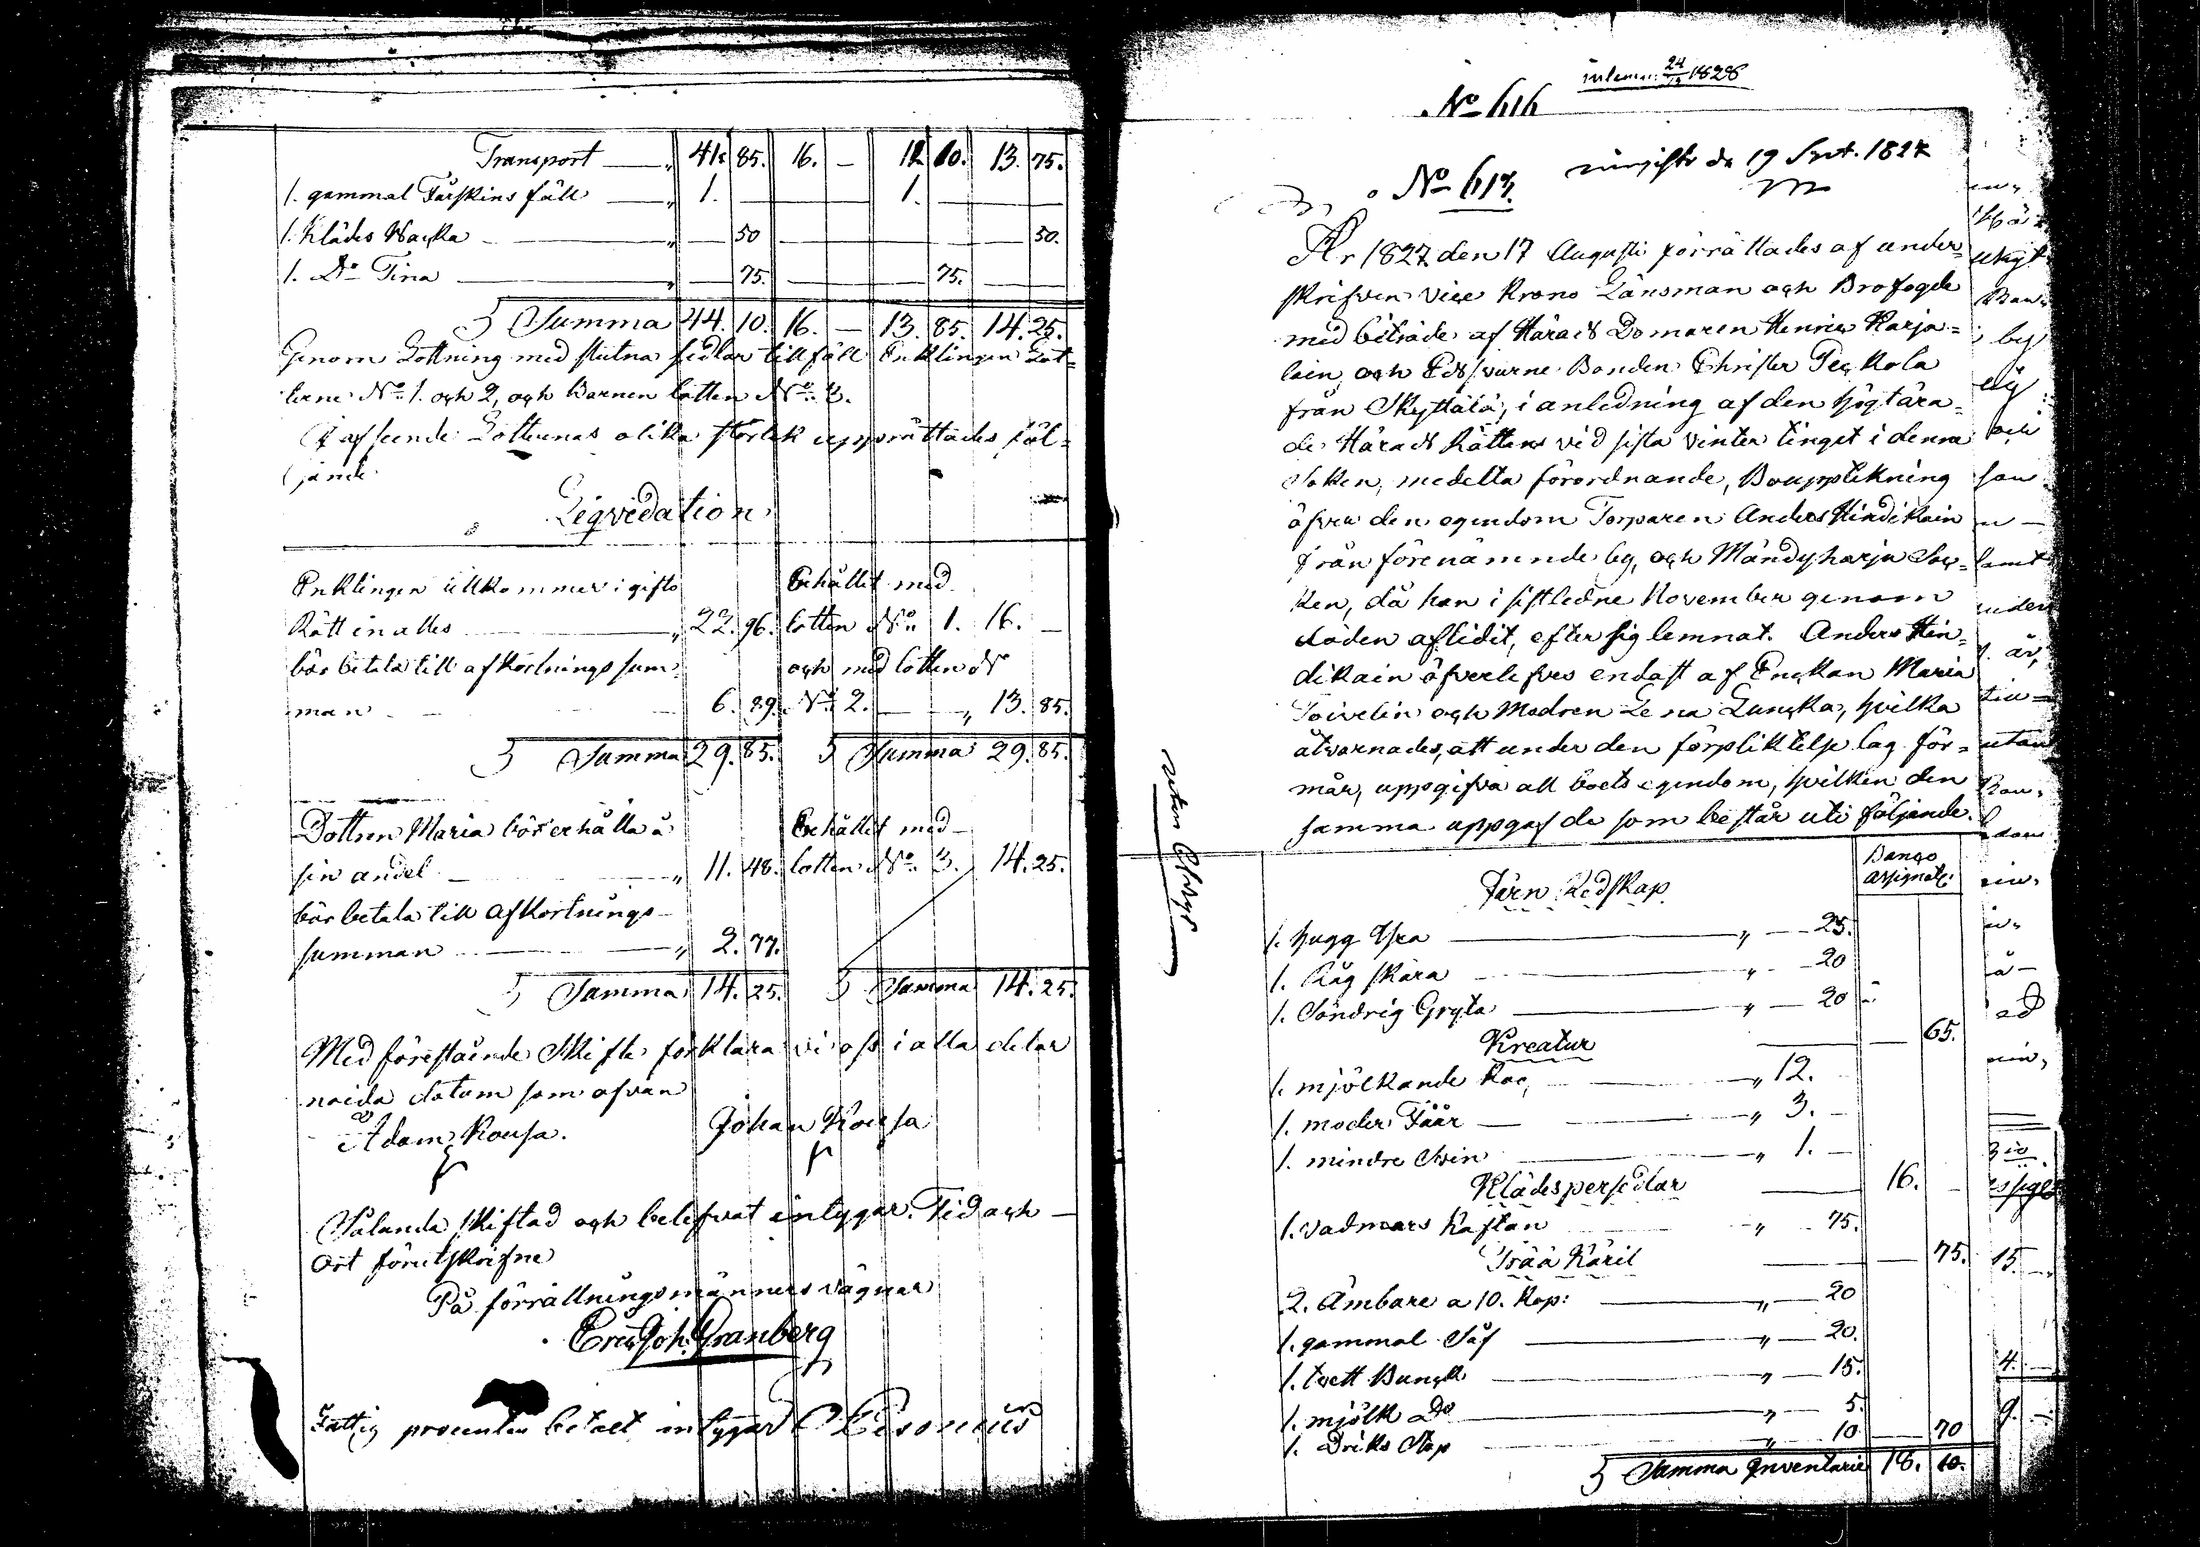 Transport — „ 41. 85. 16. — 12. 10. 13. 75.
1. gammal Fårskins fäll — „ 1. — 1. —
1. Kläds Wacka — „ — 50 — 50.
1. Do Tina — „ — 75. — 75. —
Summa 44. 10. 16. — 13. 85. 14. 25.
Genom Lottning med slutna sedlar tillföll Enklingen Lot-
terne No 1. och 2, och Barnen lotten No 3.
I afseende Lotternas olika storlek upprättades föl-
jande
Liqvidation
Enklingen tillkommer i gifto
Rätt in alles — „ 22. 96.
bör betala till afkortnings sum-
man — 6. 89.
Summa 29. 85.
Erhållit med
lotten No 1. 16. —
och med lotten
No 2. — „ 13. 85.
Summa 29. 85.
Dottren Maria bör erhålla å
sin andel — „ 11. 48.
bör betala till afkortnings
summan — „ 2. 77.
Summa 14. 25.
Erhållit med
lotten No 3. 14. 25.
Summa 14. 25.
Med förestående Skifte förklara vi oss i alla delar
nöida datum som ofvan
Adam Kousa. Johan Kousa
Sålunda skiftad och belefvat intygar. Tid och
Ort förutskrifne
På förrättningsmänners vägnar
Eric Joh. Granberg
Fattig procenten betalt intygar
inlemn. 24/12 1828
No 616
No 613.
d 19 Sept. 1827
År 1827 den 17 Augusti förrättades af under-
skrifven vice Krono Länsman och Brofogde
med biträde af Härads Domaren Henric Karja-
lain och Edsvurne Bonden Christer Peckola
från Skyttälä, i anledning af den högtära-
de Härads Rättens vid sista vinter tinget i denna
Soken, medelta förordnande, Bouppteckning
öfver den egendom Torparen Anders Hindikain
från förenämnde by, och Mändyharju Soc-
ken, då han i sistledne November genom
döden aflidit, efter sig lemnat. Anders Hin-
dikain öfverlefves endast af Enckan Maria
Toivelin och Modren Lena Luncka, hvilka
åtvarnades, att under den förpliktelse lag för-
mår, uppgifva all boets egendom, hvilken den
samma uppgaf de som består uti följande.
Banco
assignat:
Järn Redskap
1. hugg Yxa — „ — 25.
1. Råg skära — „ — 20
1. Söndrig Gryta — „ — 20
— 65.
Kreatur
1. mjölkande Ko, — „ 12. —
1. moder Fåår — „ 3. —
1. mindre Svin — „ 1. —
16. —
Klädespersedlar
1. vadmars Kaftan — „ 75.
— 75.
Trää Käril
2. Ämbare a 10. Kop: — „ — 20
1. gammal Så — „ — 20.
1. tvett Bunck — „ — 15.
1. mjölk Do — „ — 5.
1. Driks Stop — „ 10 — 70
Summa Inventarie 18. 10.